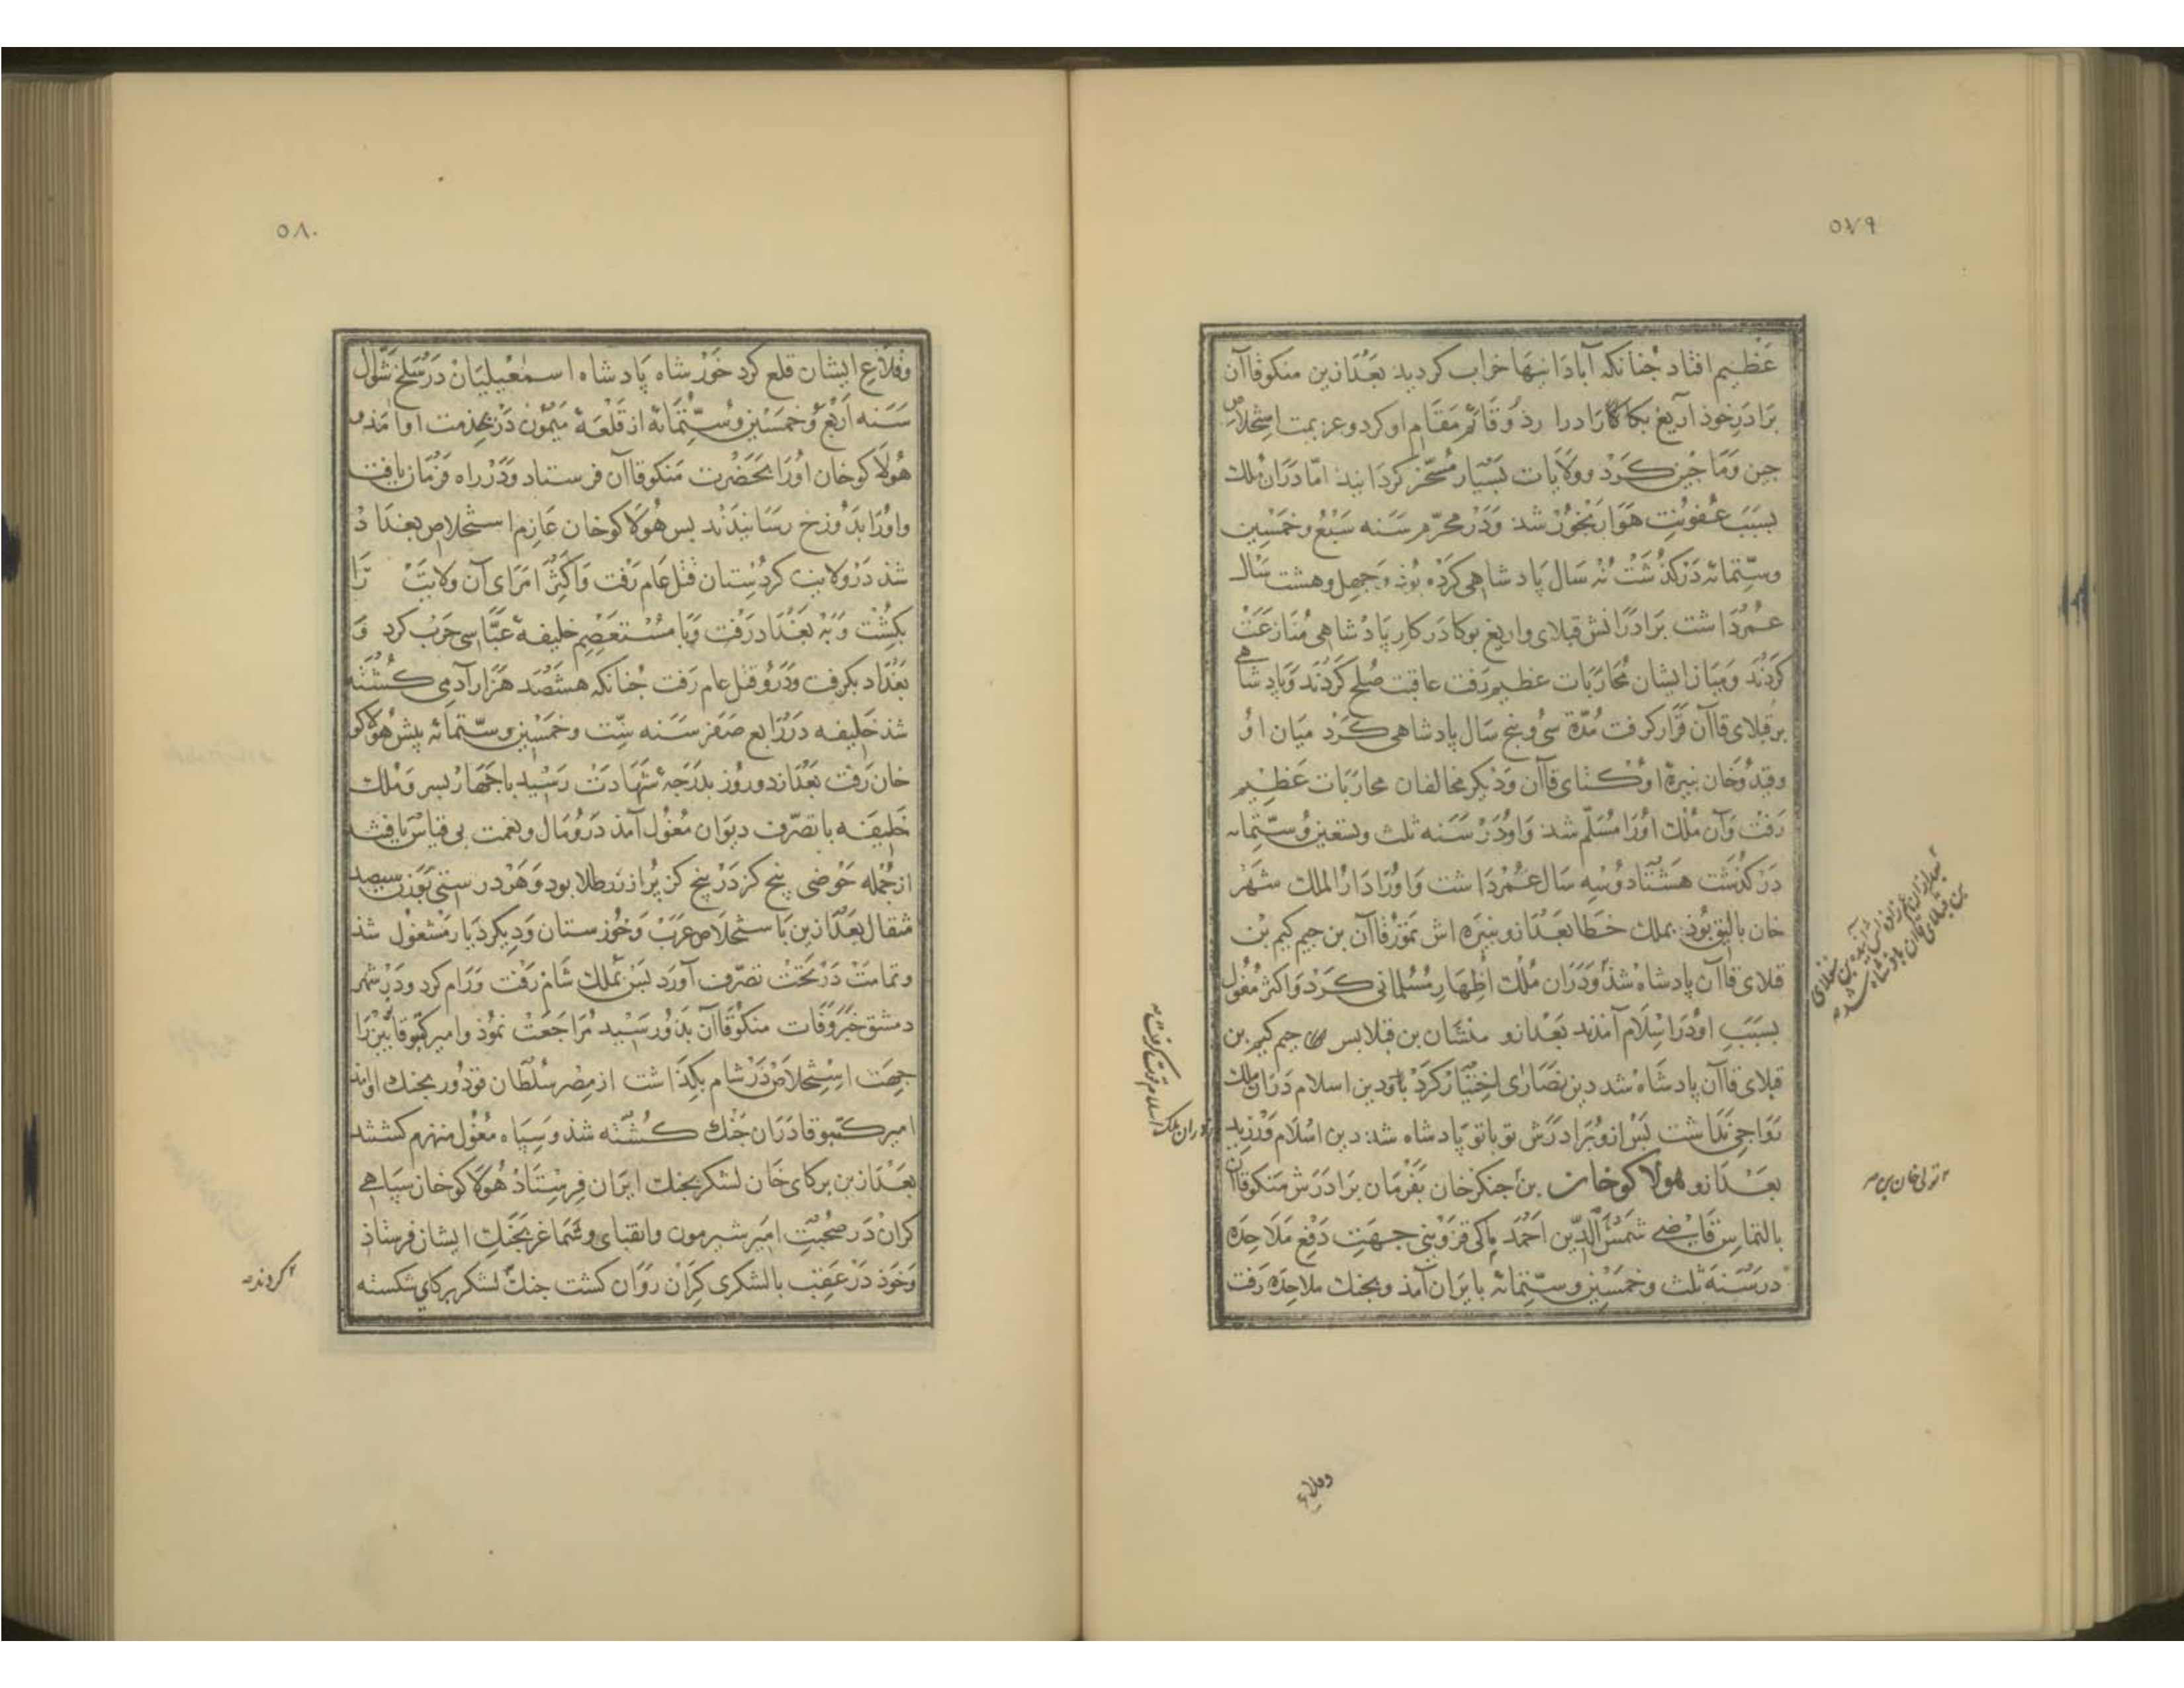 ٥٧٩
عَظیم افتاد جُنانکه آبادَانیها خراب کردید بَعْدازین منکوقاآن
برَادَرِ خوذ اریغ بکا کارا درا رذ و قائم مَقَام او کرد و عزیمت استخلاصِ
جین وَمَا جین کَرد و ولایات بَسیار مُسَخّر کردَانید امّا دَرَان مُلک
بسبَبَ عُفونَت هَوَا رنجُور شد وَدَر محرّم سَنه سَبْع و خمَسْین
وستّمائه دَرکذشت نُه سَال پَادشاهی کرْده بُوذ وَ جهل و هشت سَال
عُمْردَاشت برَادرَانش قبلای و اریغ بوکا دَر کارِ پَادشاهی مُنَازَعَت
کردَنْد وَمیَان ایشان مُحَارَبات عظیم رَفت عاقبت صُلح کَردَند وَپادشاهی
بر قبلای قاآن قرَار کرفت مُدّة سی و پنج سَال پادشاهی کَرد میَان او
و قیدُوخان نبیرهٔ اوُکتای قاآن وَدیکر مخالفان محارَبات عَظیم
رَفت وَآن مُلْک اوُرا مُسَلّم شد وَاو دَر سَنَه ثلث و تسعین وَستّمائه
دَرکذشت هَشتاد وُ سِه سَال عُمْردَاشت وَاوُرا دَارُ الملک شَهْر
خان بالیق بُوذ بملک خطا بَعْدازو نبیرَه اش تمَوُرقاآن بن جیم کیم بن
قلای قاآن پادشاه شذ وَدَرَان مُلک اظهَار مُسُلمانی کَرد وَاکثر مُغُول
بسَبَبِ او دَر اسلام آمَدند بَعْدازو منشان بن قبلا بسر جیم کیم بن
قبلای قاآن پادشَاه شد دین نصَارَی اختیار کَرد بَاو دین اسلام دَرَان ملک
رَوَاجی نَدَاشت پَس ازو برَادرَش توباتو پَادشاه شد دین اسْلام وَرْزید
بعَدازو هولاکوخان بن جنکزخان بفَرمَان برَادَرش منکوقاآن
بالتماس قاضی شمْسُ الدّین احْمَد ماکی قزوینی جهَت دَفعِ مَلَاحِدَه
درسَنَة ثلث و خمَسْین و ستّمائه بایرَان آمَذ و بجنک ملاحِدَه رَفت
بن قبلای قاآن پادشاه شد
تولی خان بن
وقلاع
٥٨٠
وقلاعِ ایشان قلع کرد خَوُرشاه پَادشاه اسمٰعیلیَان دَر سَلخ شَوّال
سَنَه اَربَعْ وَ خمَسْین وَ ستّمَائه از قَلعَۀ مَیمُون دَر بخذمت او آمَذ
هُولاکوخان اوُرَا بحَضْرَت مَنکوقاآن فرستاد وَدَر راه فَرمَان یافت
و اوُرَا بدُوزخ رسَانیدَند پس هُولاکوخان عَازم استخلاص بغدَاد
شذ دَر وِلایت کردُسِتان قتل عام رَفت وَاکثَر امَرَای آن ولایَت را
بکُشت وَ به بَغْدَاد رَفت وَبا مسْتَعصِم خلیفۀ عبّاسی حَرب کرد وَ
بَغْدَاد بکرفت وَدَرو قتل عام رَفت جُنانکه هشتصَد هَزَار آدمی کُشته
شذ خلیفه دَر رَابع صَفر سَنه ستّ و خمَسْین و ستّمائه پیش هُولاکو
خان رَفت بَعْدَاز دو روُز بدَرَجۀ شهَادَت رَسید با جَهار پسر وَ مُلک
خَلیفَه باتصَرّف دیوَان مُغوُل آمذ دَرو مَال و نعمت بی قیاس یافتند
از جُمله حَوضی پنج کز دَر پنج کز پُر از زر طلا بود وَ هَر درستی بَوزن سیصد
مثقال بَعْدازین باستخلاص عرَب وَ خُوزستان وَ دیکر دیَار مَشغُول شذ
و تمامَت دَر تحَت تصرّف آورد پَس بملک شَام رَفت وَرَام کرد ودَر شهر
دمشق خبَر وَفات منکُوقاآن بذو رَسید مُرَاجَعَت نمُوذ و امیر کتبوقا نَوین رَا
جهَت استخلاص دَر شام بکذَاشت از مِصر سُلطان قودوُر بجنک او امذ
امیر کتبوقا دَرَان جَنک کُشته شذ وَ سپَاه مُغوُل منهزم کشتند
بَعْدازین برکای خان لشکر بجنک ایرَان فرِستَاذ هُولاکوخان سپاهی
کران دَر صُحبَتِ امَیر شیرمون و انقبای و شماغر بجَنکِ ایشان فرِستاذ
وَخوذ دَر عَقب بالشکری کِرَان رَوَان کشت جنک لشکر برکای شکسته
کردند